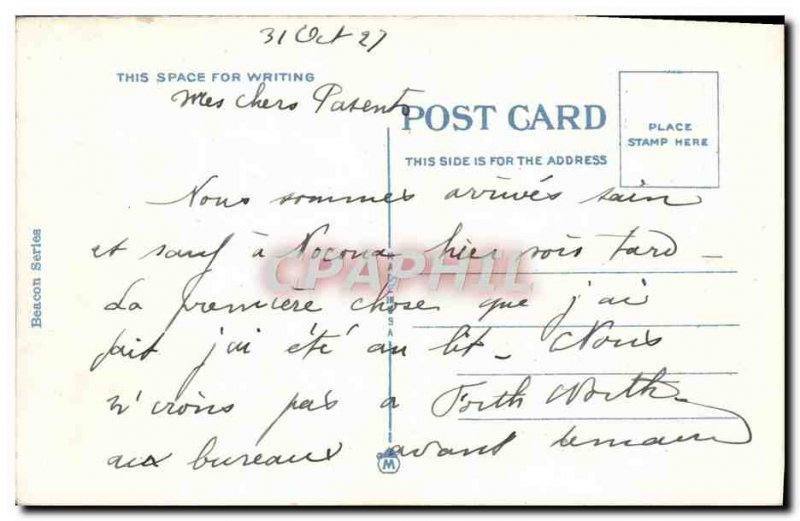 31 Oct 27
THIS SPACE FOR WRITING
Mes Chers Parents
POST CARD
PLACE
STAMP HERE
THIS SIDE IS FOR THE ADDRESS
Nous sommes arrivés sain
et sauf à Nocona hier soir tard -
CPAPHIL
La première chose que j'ai
fait j'ai été au lit - Nous
n'irons pas a Forth Worth
aux bureaux avant demain
Beacon Series
M